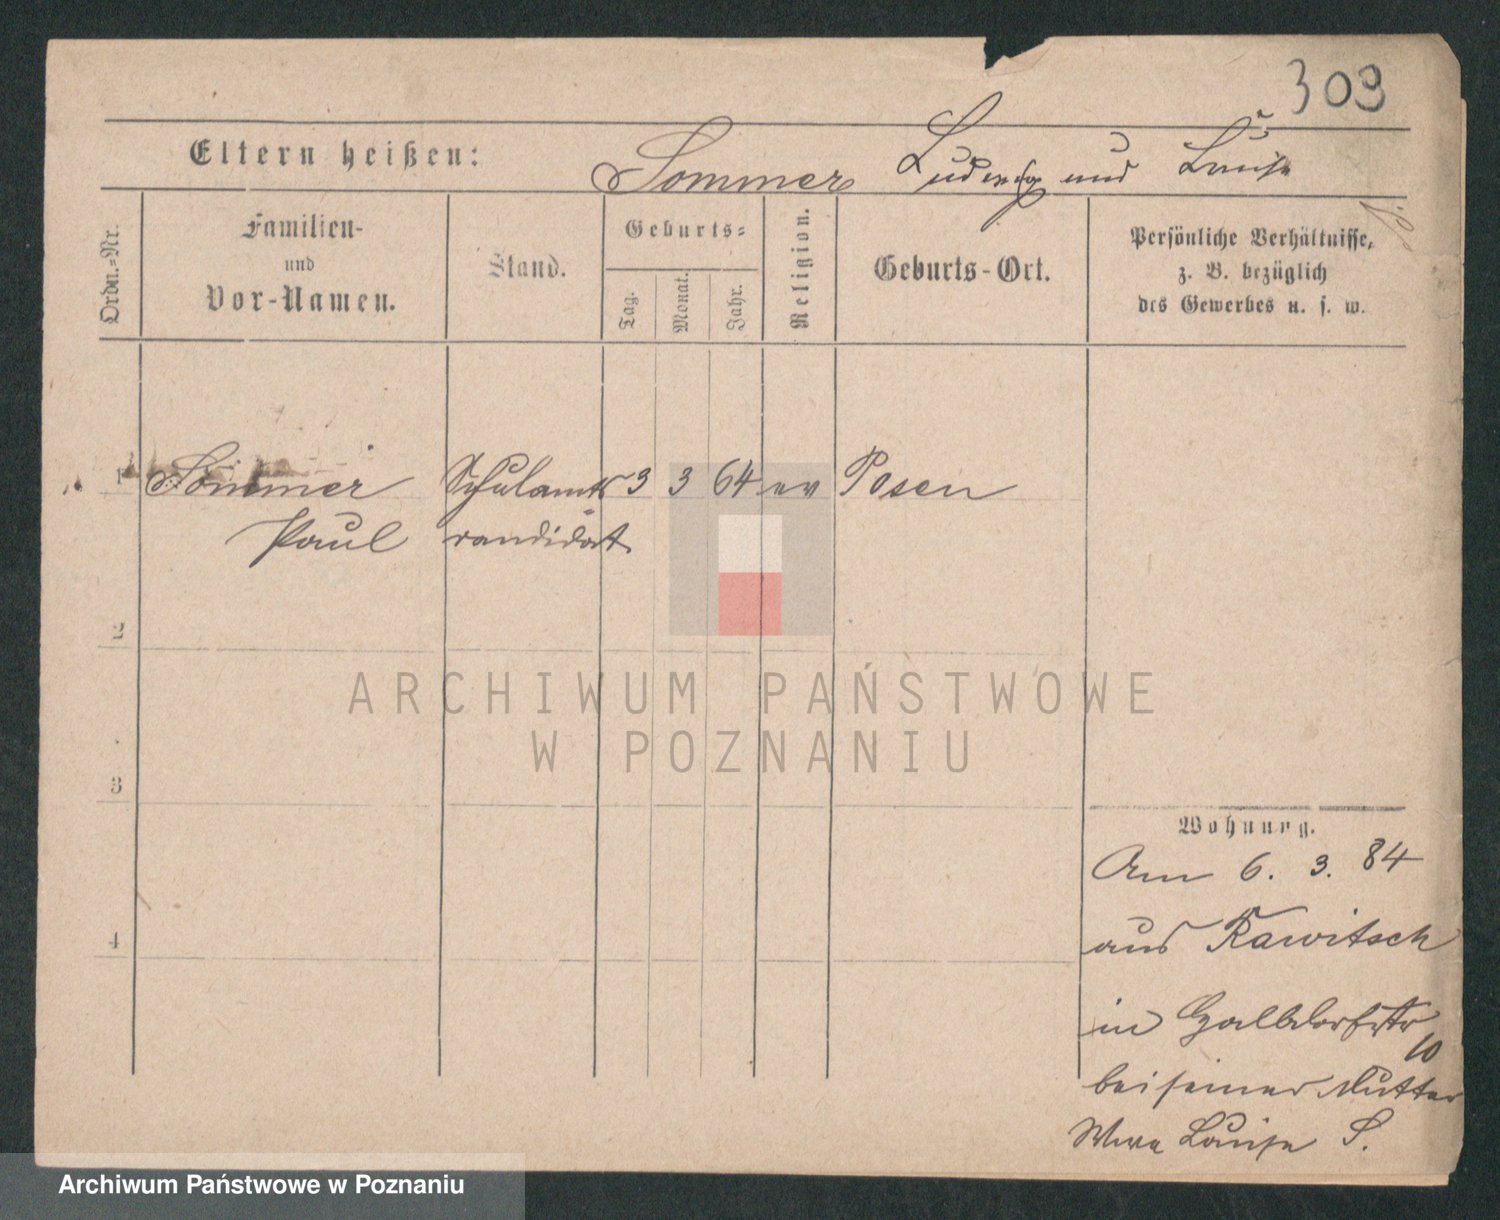 309
Eltern heißen: Sommer Ludwig und Louise
Ordn.-Nr.
Familien-
und
Vor-Namen.
Stand.
Geburts-
Tag.
Monat.
Jahr.
Religion.
Geburts-Ort.
Persönliche Verhältnisse,
z. B. bezüglich
des Gewerbes u. s. w.
1 Sommer Schulamts 3 3 64 ev Posen
Paul candidat
2
3
4
Wohnung.
Am 6. 3. 84
aus Rawitsch
in Halbdorfstr
10
bei seiner Mutter
Wwe Louise S.
ARCHIWUM PAŃSTWOWE
W POZNANIU
Archiwum Państwowe w Poznaniu